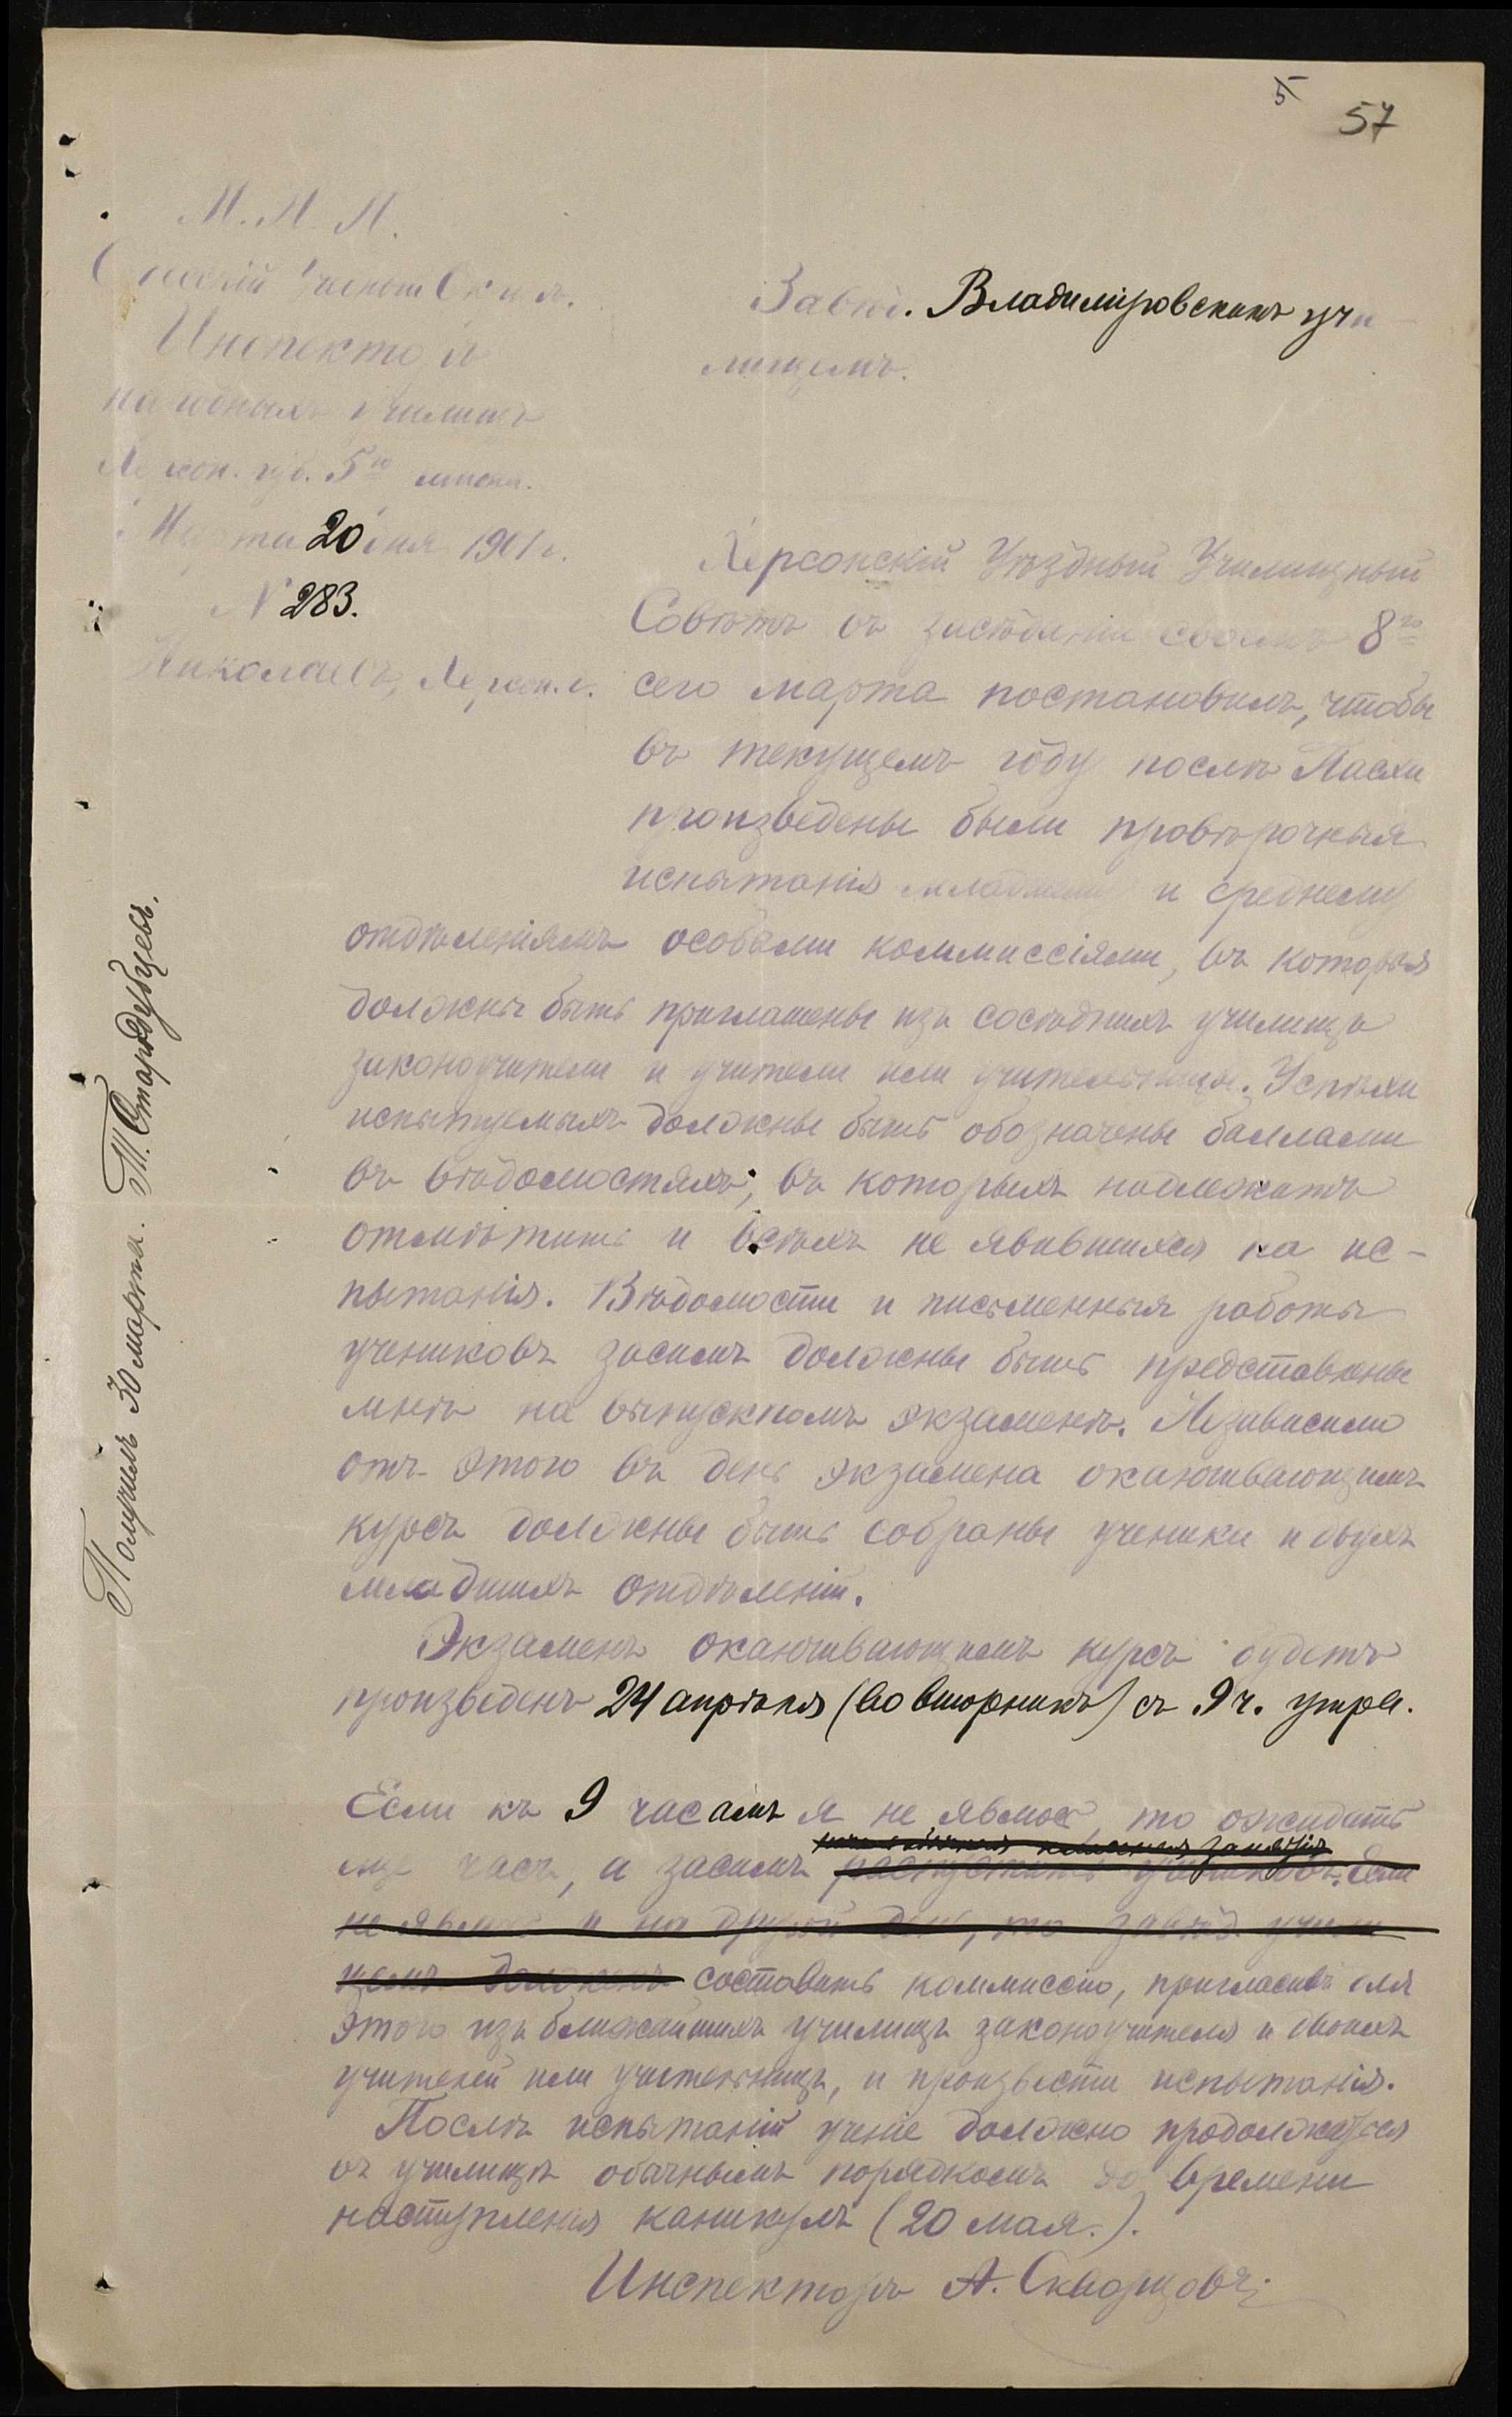 5 57
М. Н. П.
Одесскій Учебный Округъ.
Инспекторъ
народныхъ училищъ
Херсон. губ. 5го участка.
Марта 20 дня 1901 г.
N 283.
Николаевъ, Херсон. г.
Завѣд. Владимировскимъ учи
лищемъ.
Херсонскій Уѣздный Училищный
Совѣтъ въ засѣданіи своемъ 8го
сего марта постановилъ, чтобы
въ текущемъ году послѣ Пасхи
произведены были провѣрочныя
испытанія младшему и среднему
отдѣленіямъ особыми коммиссіями, въ которыя
должны быть приглашены изъ сосѣднихъ училищъ
законоучители и учители или учительницы. Успѣхи
испытуемыхъ должны быть обозначены баллами
въ вѣдомостяхъ, въ которыхъ надлежитъ
отмѣтить и всѣхъ не явившихся на ис-
пытанія. Вѣдомости и письменныя работы
учениковъ засимъ должны быть представлены
мнѣ на выпускномъ экзаменѣ. Независимо
отъ этого въ день экзамена оканчивающимъ
курсъ должны быть собраны ученики и двухъ
младшихъ отдѣленій.
Экзаменъ оканчивающимъ курсъ будетъ
произведенъ 24 апрѣля (во вторникъ) съ 9 ч. утра.
Если къ 9 часамъ я не явлюсь, то ожидать
занятія
еще часъ, а засимъ распустить учениковъ. Если
не явлюсь и на другой день, то завѣд. учили
щемъ долженъ составить коммиссію, пригласивъ для
этого изъ ближайшихъ училищъ законоучителя и двоихъ
учителей или учительницъ, и произвести испытанія.
Послѣ испытаній ученіе должно продолжаться
въ училищѣ обычнымъ порядкомъ до времени
наступленія каникулъ (20 мая.).
Инспекторъ А. Скворцовъ
Получилъ 30 марта. Т. Стародубцевъ.